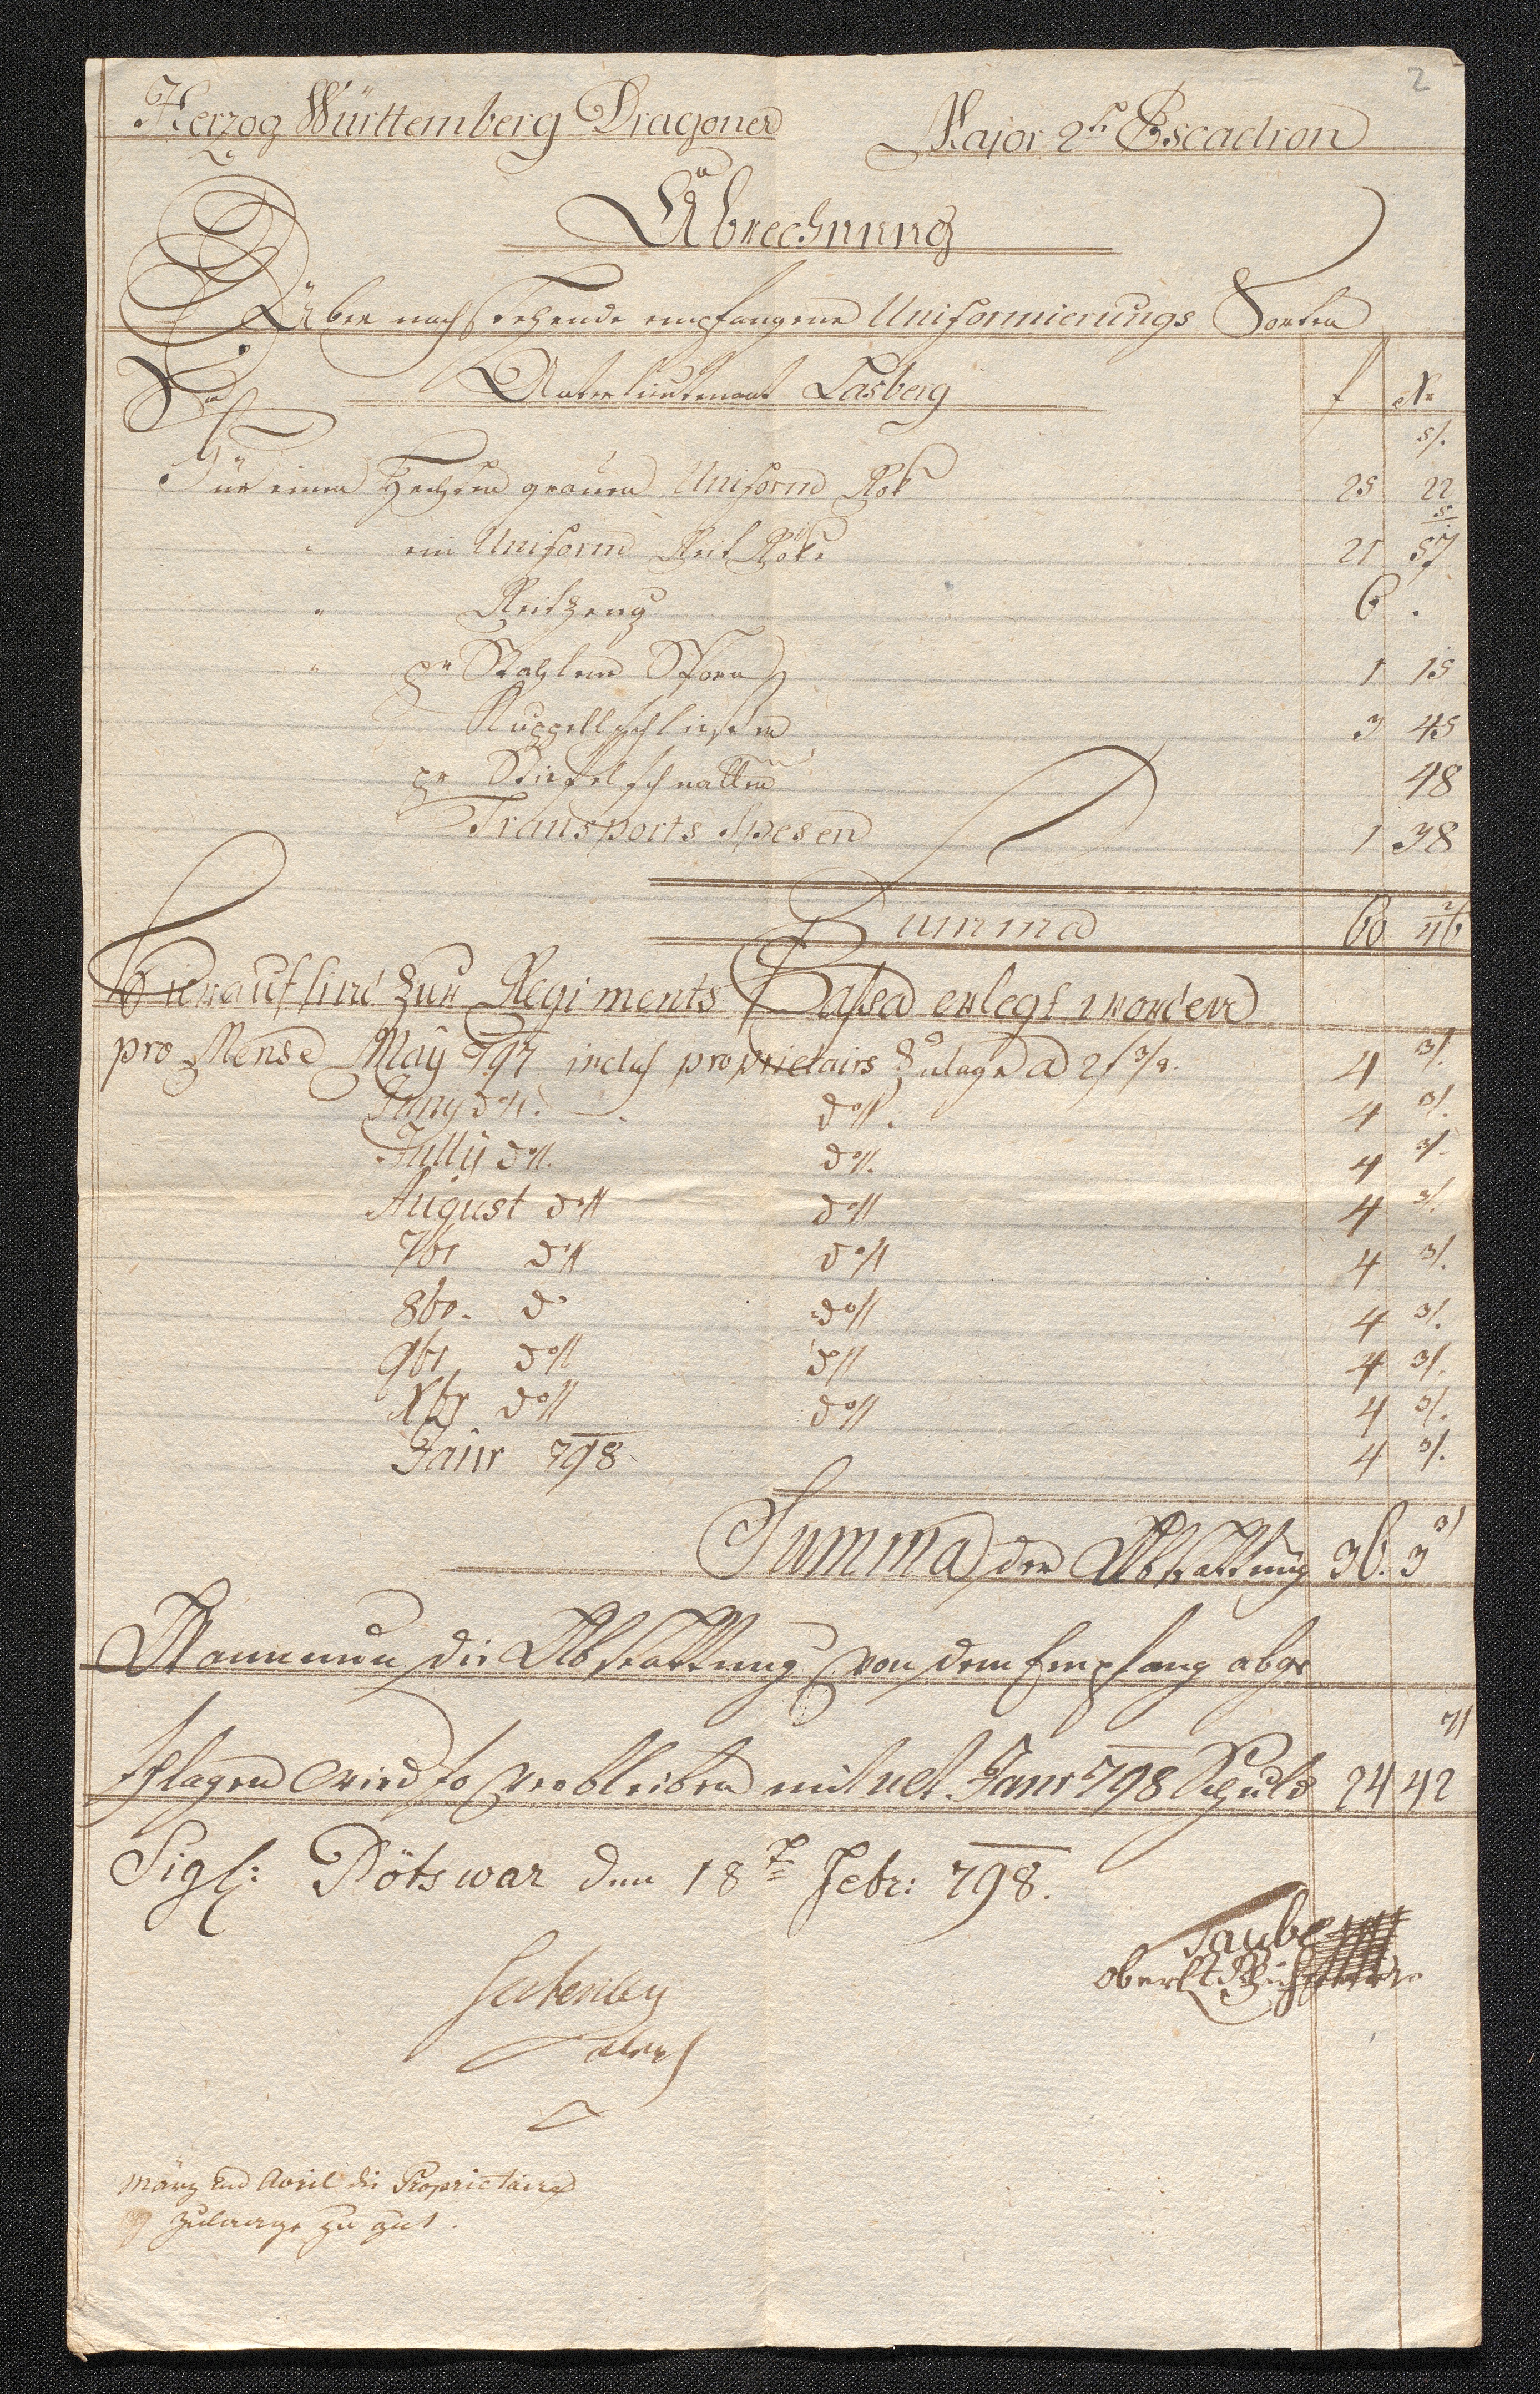 2
Herzog Württemberg Dragoner Major 2te Escadron
Abrechnung
Über nachstehende empfangene Uniformierungs Sorten
Unterlieutenant Lasberg f Xr
Für einen Hechten grauen Uniform Rok 25 22
" ein Uniform Reit Rökl 21 57
" Reitzeug 6 .
" pr Stahlene Sporn 1 15
Kuppelschließen 3 45
pr Stiefelschnallen 48
Transports Spesen 1 38
Summa 60 46
Hierauf sind zur Regiments Cassa erlegt worden
pro Mense May 797 inclus proprietairs Zulage a 2f 3/4. 4 3/.
Juny dott. dott. 4 3/.
Jully dott. dott. 4 3/.
August dott dott 4 3/.
7br dott dott 4 3/.
8br. do dott 4 3/.
9br dott dott 4 3/.
Xbr dott dott 4 3/.
Janr 798 4 3/.
Summa der Abstattung 36. 3
Wann nun die Abstattung von dem Empfang abge
schlagen wird so verbleiben mit ult. Janr 798 Schuld 24 42
Sigl: Pötswar den 18t Febr: 798.
Taube
Oberst
März und April die Proprietaire
Zulaage zu gut.